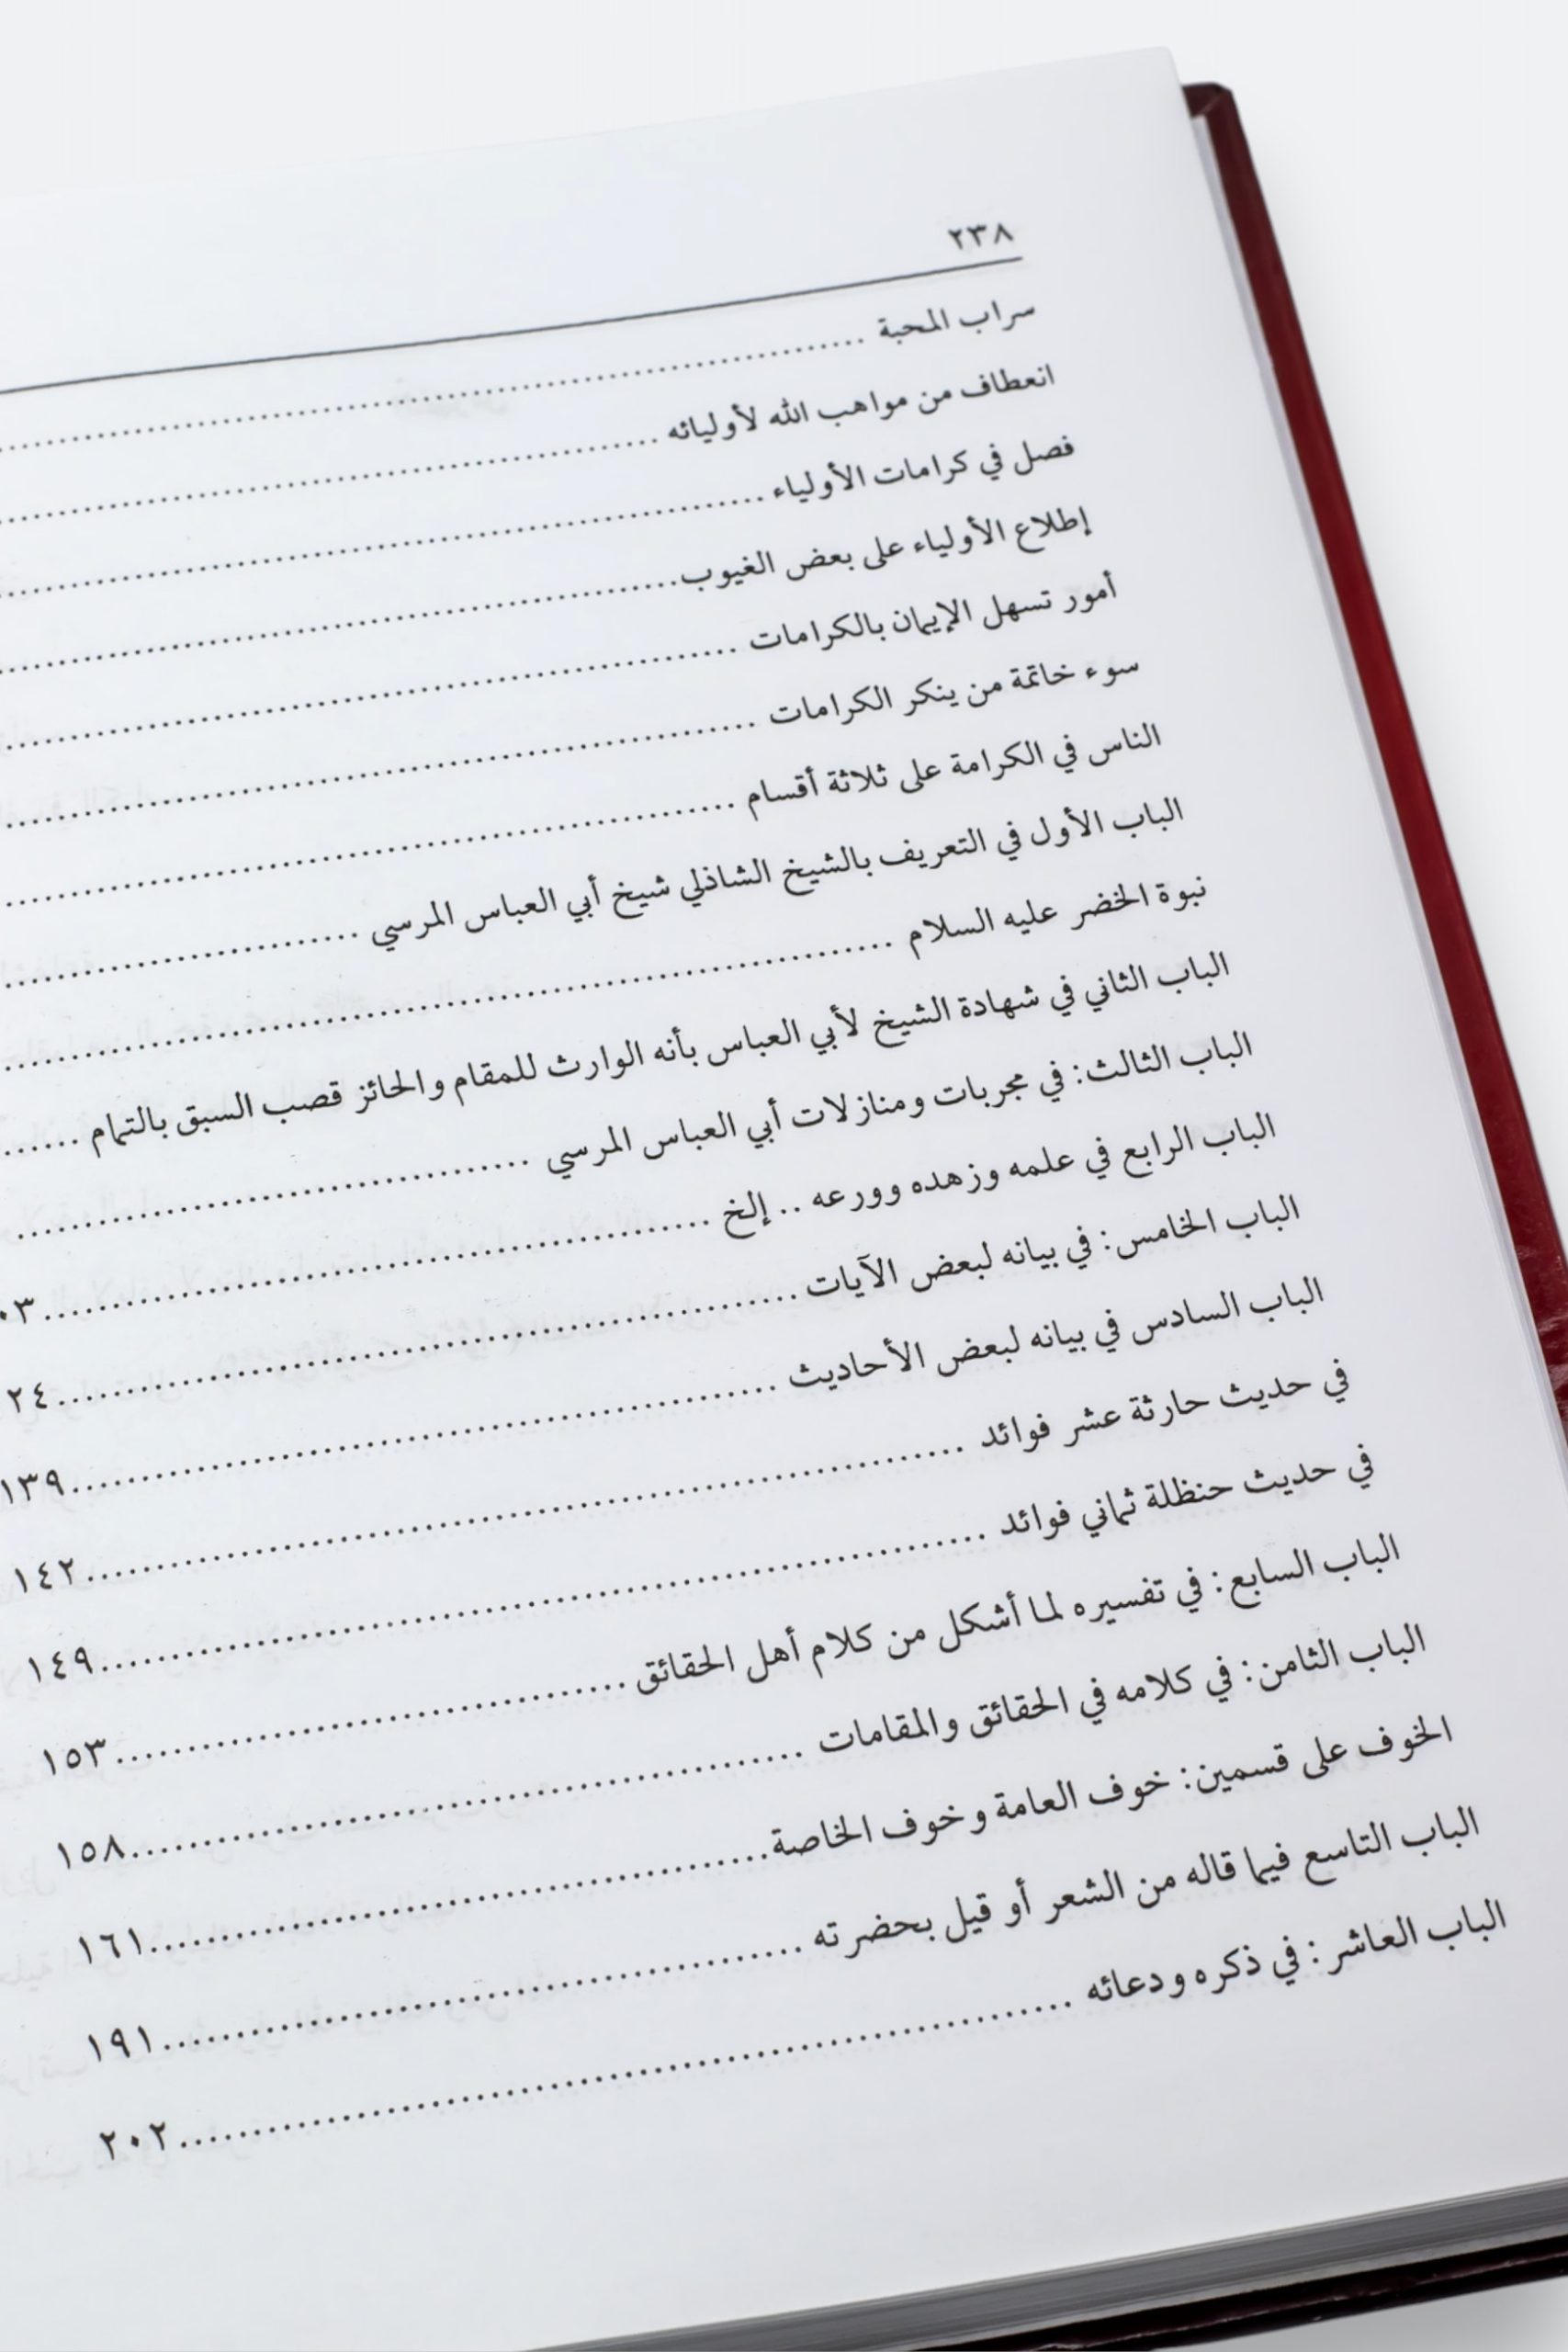 ٢٣٨
سراب المحبة
انعطاف من مواهب الله لأوليائه
فصل في كرامات الأولياء
إطلاع الأولياء على بعض الغيوب
أمور تسهل الإيمان بالكرامات
سوء خاتمة من ينكر الكرامات
الناس في الكرامة على ثلاثة أقسام
الباب الأول في التعريف بالشيخ الشاذلي شيخ أبي العباس المرسي
نبوة الخضر عليه السلام
الباب الثاني في شهادة الشيخ لأبي العباس بأنه الوارث للمقام والحائز قصب السبق بالتمام
الباب الثالث: في مجربات ومنازلات أبي العباس المرسي
الباب الرابع في علمه وزهده وورعه .. إلخ ٠٣
الباب الخامس: في بيانه لبعض الآيات ٢٤
الباب السادس في بيانه لبعض الأحاديث ١٣٩
في حديث حارثة عشر فوائد ١٤٢
في حديث حنظلة ثماني فوائد ١٤٩
الباب السابع: في تفسيره لما أشكل من كلام أهل الحقائق ١٥٣
الباب الثامن: في كلامه في الحقائق والمقامات ١٥٨
الخوف على قسمين: خوف العامة وخوف الخاصة ١٦١
الباب التاسع فيما قاله من الشعر أو قيل بحضرته ١٩١
الباب العاشر: في ذكره ودعائه ٢٠٢